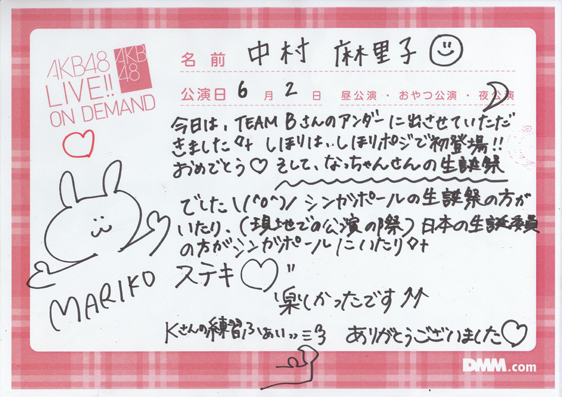 AKB48
LIVE!!
ON DEMAND
AKB
48
名前 中村 麻里子
公演日 6月 2日 昼公演・おやつ公演・夜公演
今日は、TEAM Bさんのアンダーに出させていただ
きました しほりは、しほりポジで初登場!!
おめでとう♡ そして、なっちゃんさんの生誕祭
でした\(^o^)/ シンガポールの生誕祭の方が
いたり、(現地での公演の際) 日本の生誕委員
の方がシンガポールにいたり
ステキ♡"
楽しかったです↑↑
Kさんの練習ふぁい
ありがとうございました♡
MARIKO
DMM.com